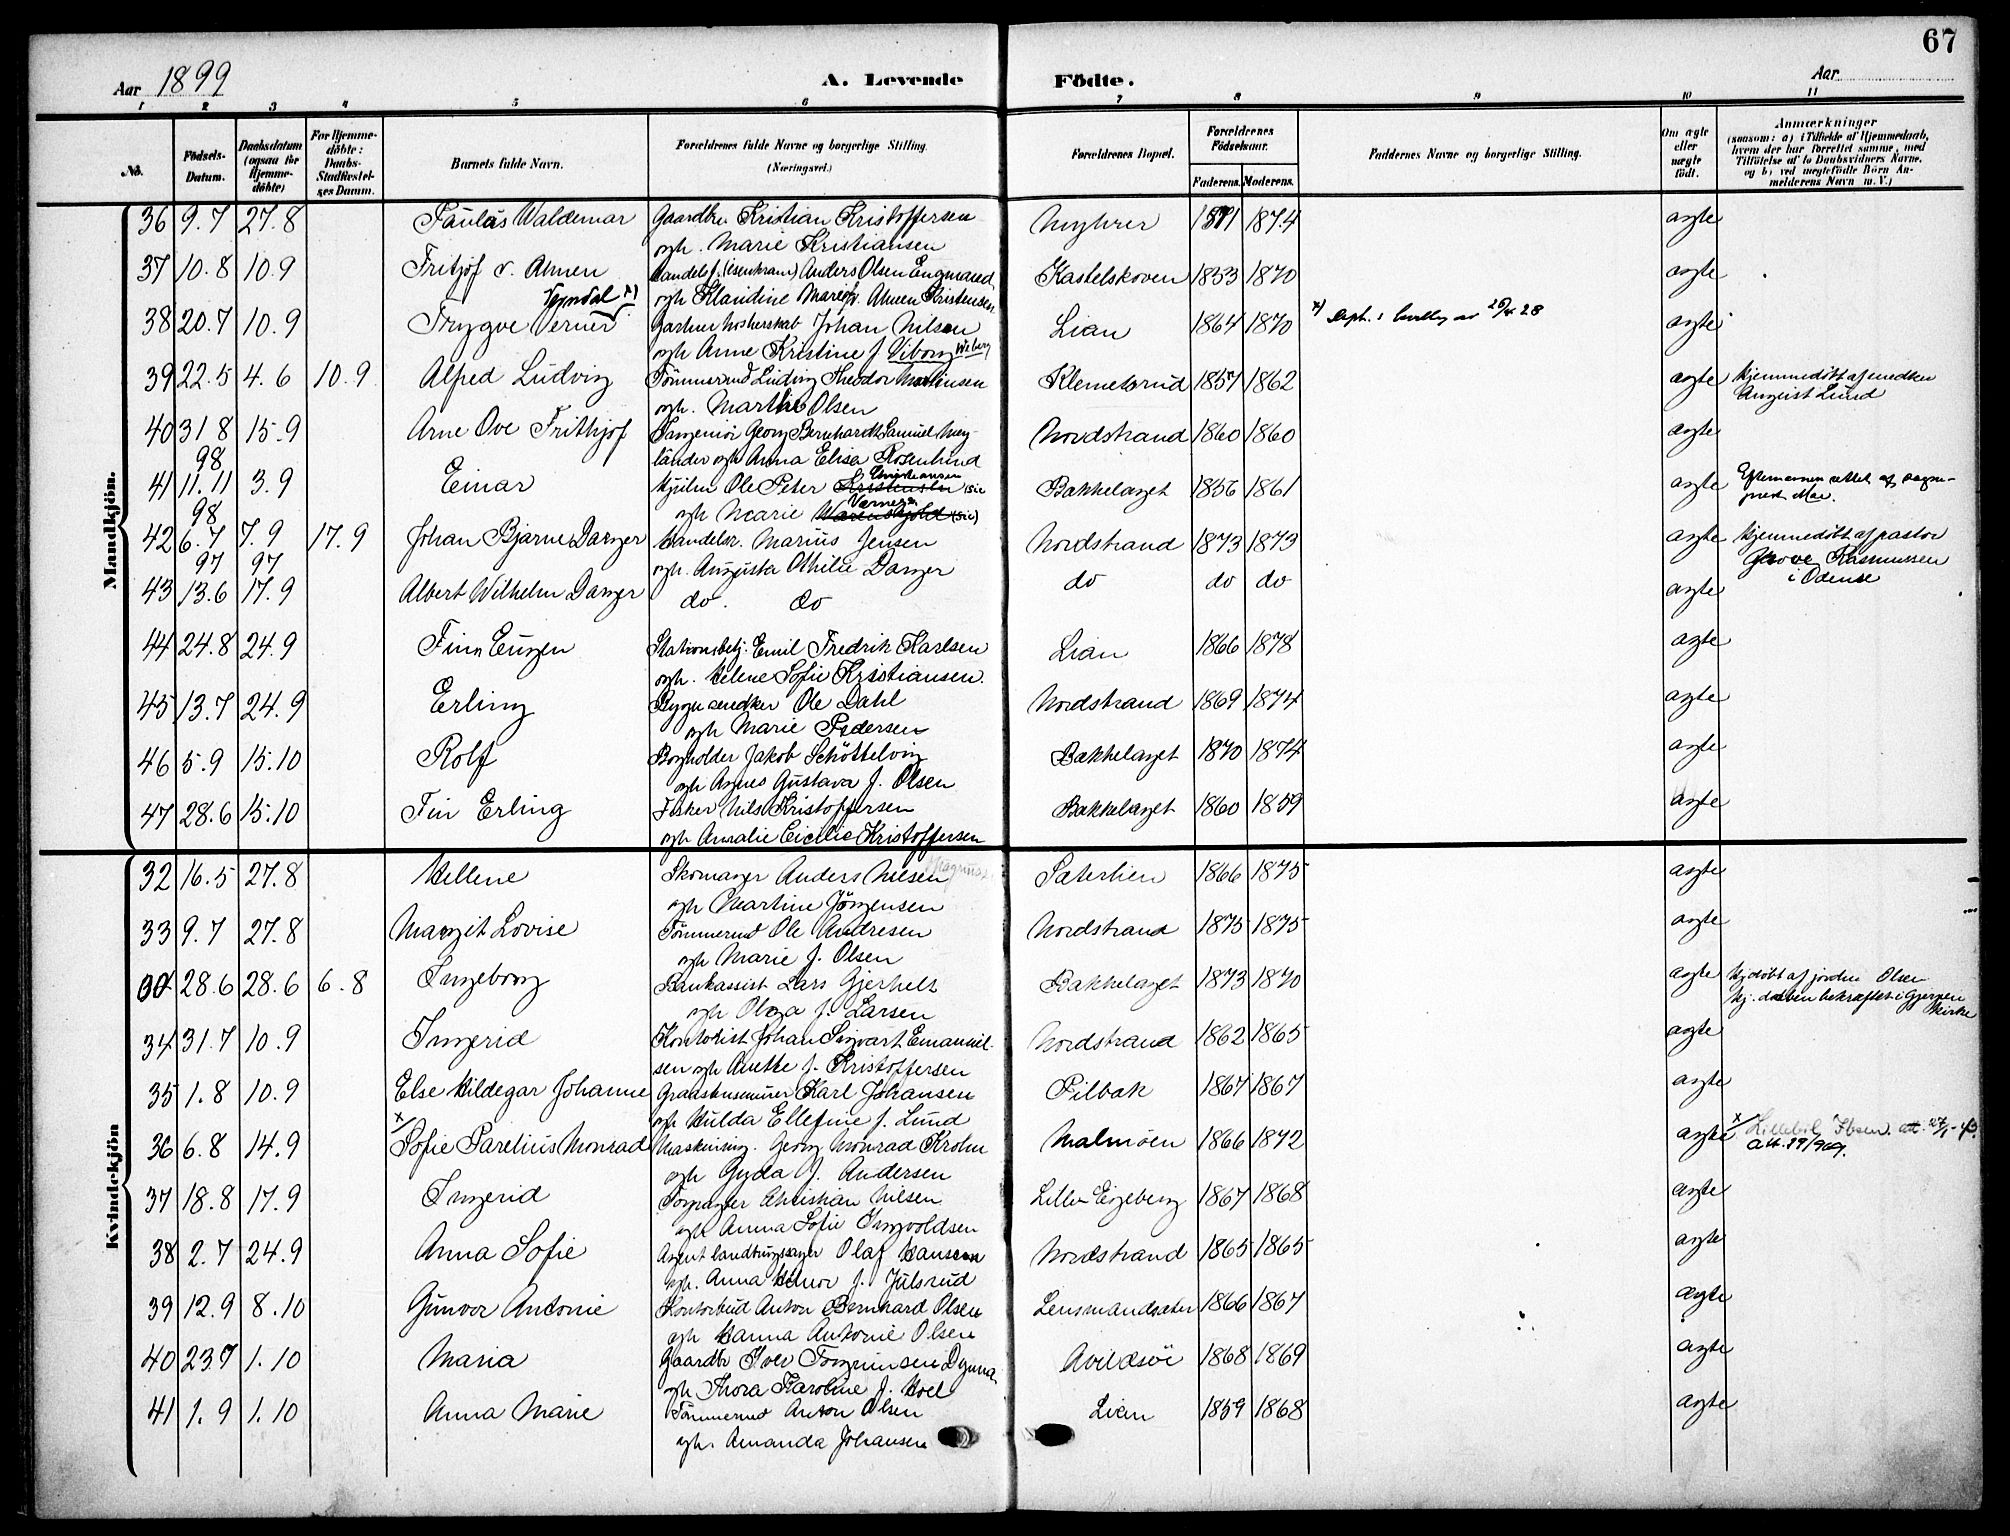 67
Aar 1899 A. Levende Födte. Aar
1 2 3 4 5 6 7 8 9 10 11
No. Födsels-Datum. Daabsdatum (ogsaa for Hjemmedöbte) For Hjemmedöbte: Daabs-Stadfæstelses Datum. Barnets fulde Navn. Forældrenes fulde Navne og borgerlige Stilling. (Næringsvei.) Forældrenes Bopæl. Forældrenes Födselsaar. Faderens. Moderens. Faddernes Navne og borgerlige Stilling. Om ægte eller uægte födt. Anmærkninger (saasom: a) i Tilfælde af Hjemmedaab, hvem der har forrettet samme, med Tilföielse af to Daabsvidners Navne, og b) ved uægtefödte Börn Anmelderens Navn m. V.)
Mandkjön.
36 9.7 27.8 Paulus Waldemar Gaardbr. Kristian Kristoffersen 1871 1874 ægte
og h. Marie Kristiansen
37 10.8 10.9 Fritjof v. Ahnen Handelsf. (isenkram) Anders Olsen Engmased Kastelskoven 1853 1870 ægte
og h Klaudine Marie v. Ahnen Kristensen
38 20.7 10.9 Trygve Verner Gartner Johan Nilsen Lian 1864 1870 ægte
og h Anne Kristine f. Viborg Weberg
39 22.5 4.6 10.9 Alfred Ludvig Tömmermd Ludvig Theodor Martinsen Klemetsrud 1857 1862 ægte Hjemmedöbt af snedker
og h. Marthe Olsen August Lund
40 31 8 15.9 Arne Ove Frithjof Georg Bernhardt Samuel Mey- Nordstrand 1860 1860 ægte
98 länder og h Anna Elisa Rosenlund
41 11.11 3.9 Einar Ole Peter Christiansen (sic Bækkelaget 1856 1861 ægte Efternavnen rettet af sogne-
98 og h Marie Verner (sic) prest Moe.
42 6.7 7.9 17.9 Johan Bjarne Danger Handelsr. Marius Jensen Nordstrand 1873 1873 ægte Hjemmedöbt af pastor
97 97 og h. Augusta Othilie Danger Grove Rasmussen
43 13.6 17.9 Albert Wilhelm Danger do. do do do do ægte i Odense
44 24.8 24.9 Finn Eugen Stationsbetj. Emil Fredrik Karlsen Lian 1866 1878 ægte
og h. Helene Sofie Kristiansen.
45 13.7 24.9 Erling Bygn snedker Ole Dahl Nordstrand 1869 1874 ægte
og h Marie Pedersen
46 5.9 15.10 Rolf Bogholder Jakob Schöttelvig Bækkelaget 1870 1874 ægte
og h Agnes Gustava f. Olsen
47 28.6 15.10 Fin Erling Fisker Nils Kristoffersen Bækkelaget 1860 1859 ægte
og h Amalie Cicilie Kristoffersen
Kvindekjön
32 16.5 27.8 Hellene Skomager Anders Nilsen Saterlien 1866 1875 ægte
og h Martine Jörgensen
33 9.7 27.8 Margit Lovise Tömmermd Ole Andresen Nordstrand 1875 1875 ægte
og h Marie f. Olsen
28.6 28.6 6.8 Ingeborg Bankassist Lars Gjerhelt Bækkelaget 1873 1870 ægte Hjdöbt af jordm Olsen
og h Olga f. Larsen Hj. daaben bekræftet i Gjerpen Kirke
34 31.7 10.9 Ingerid Kontorist Johan Sigvart Emanuil- Nordstrand 1862 1865 ægte
sen og h Anette f. Kristoffersen
35 1.8 10.9 Else Hildegar Johanne Graastensminer Karl Johansen Pilbak 1867 1867 ægte
og h Hulda Ellefine f. Lund
36 6.8 14.9 x/ Sofie Parelius Monrad Maskining. Georg Monrad Krohn Malmöen 1866 1872 ægte x/ Lillebil Ibsen.
og h Gyda f. Andersen
37 18.8 17.9 Ingerid Christian Nilsen Lille Ekeberg 1867 1868 ægte
og h Anna Sofie Ingvoldsen
38 2.7 24.9 Anna Sofie Agent Olaf Hansen Nordstrand 1865 1865 ægte
og h. Anna Elinor f. Julsrud
39 12.9 8.10 Gunvor Antonie Kontorbud Anton Bernhard Olsen Lensmandsæter 1866 1867 ægte
og h Hanna Antonie Olsen
40 23 7 1.10 Maria Gaardbr Iver Torgrimsen Dynna 1868 1869 ægte
og h Thora Karoline f. Hoel
41 1.9 1.10 Anna Marie Tömmermd Anton Olsen Lian 1859 1868 ægte
og h. Amanda Johansen